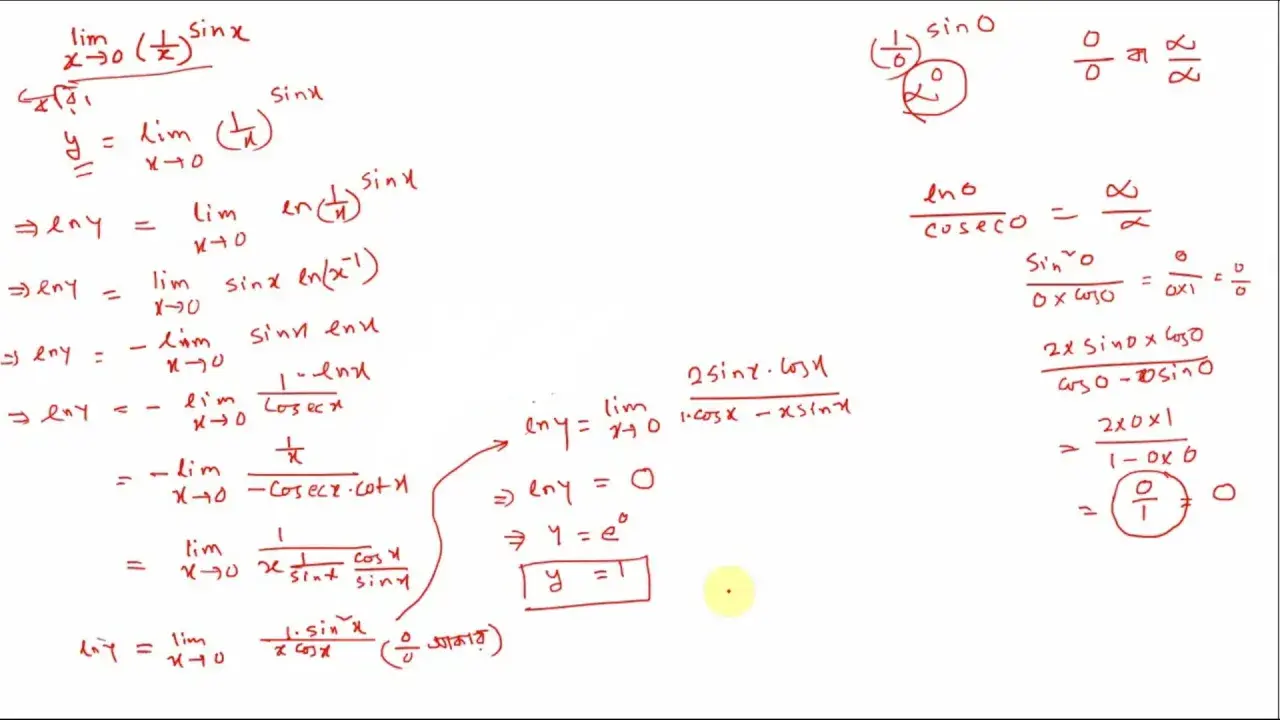 lim x→0 (1/x)^sinx
y = lim x→0 (1/x)^sinx
⇒ lny = lim x→0 ln(1/x)^sinx
⇒ lny = lim x→0 sinx ln(x^-1)
⇒ lny = - lim x→0 sinx lnx
⇒ lny = - lim x→0 1·lnx / cosecx
= - lim x→0 (1/x) / (-cosecx·cotx)
= lim x→0 1 / (x (1/sinx) (cosx/sinx))
lny = lim x→0 1·sin²x / (x cosx) (0/0 আকার)
lny = lim x→0 2sinx·cosx / (1·cosx - xsinx)
⇒ lny = 0
⇒ y = e^0
y = 1
(1/0)^sin0
∝^0
0/0 বা ∝/∝
ln0 / cosec0 = ∝/∝
sin²0 / (0×cos0) = 0/(0×1) = 0/0
2×sin0×cos0 / (cos0 - 0sin0)
= 2×0×1 / (1-0×0)
= 0/1 = 0